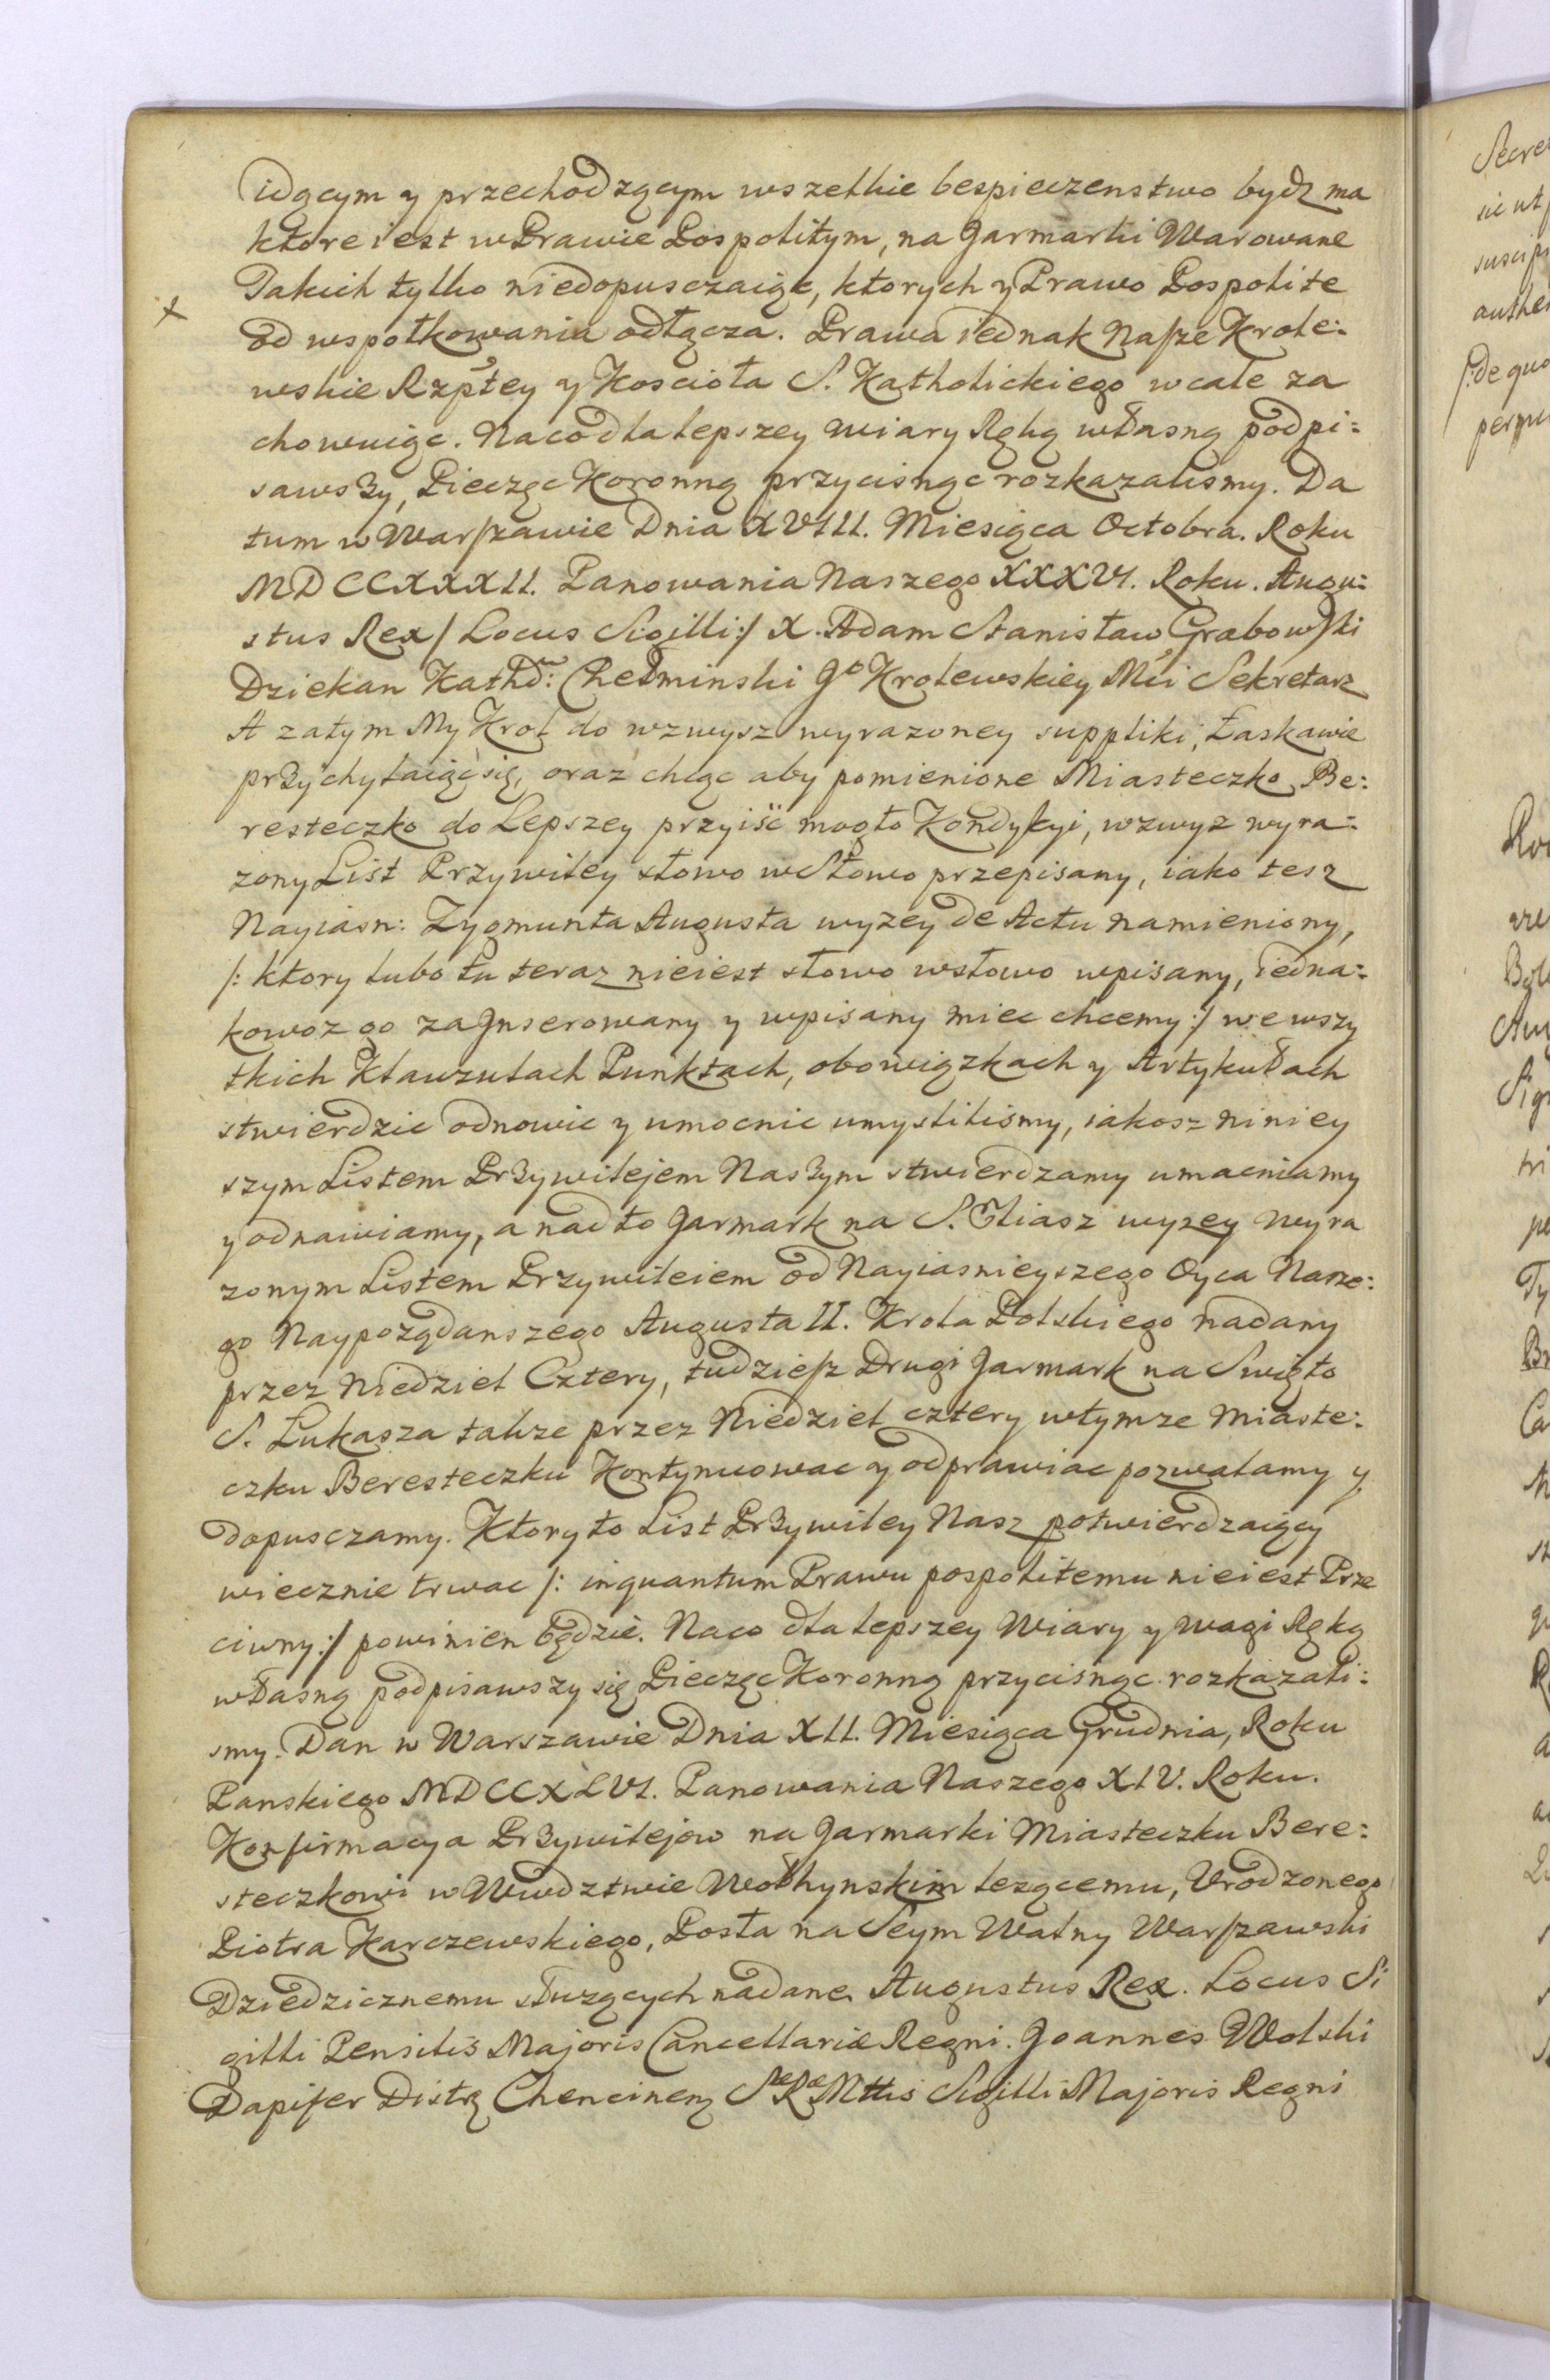 idącym y przechodzącym wszelkie bespieczenstwo bydz ma
ktore iest w Prawie Pospolitym, na Jarmarki Warowane
Takich tylko niedopusczaiąc, ktorych y Prawo Pospolite
od wspołkowania odłącza. Prawa iednak Nasze Krole=
wskie Rzpłtey y Koscioła S. Katholickiego w cale za
chowuiąc. Naco dla lepszey wiary Ręką własną podpi=
sawszy, Pieczęc Koronną przycisnąc rozkazalismy. Da
tum w Warszawie Dnia XVIII. Miesiąca Octobra. Roku
MDCCXXXII. Panowania Naszego XXXVI. Roku. Augu=
stus Rex /Locus Sigilli:/ X. Adam Stanisław Grabowski
Dziekan Kathd: Chełminski Jo Krolewskiey Mci Sekretarz
A zatym My Krol do wzwysz wyrazoney suppliki, Łaskawie
przychylaiąc się, oraz chcąc aby pomienione Miasteczko Be=
resteczko do Lepszey przyiść mogło Kondycyi, wzwyz wyra=
zony List Przywiley słowo w Słowo przepisany, iako tesz
Nayiasn: Zygmunta Augusta wyzey de Actu namieniony,
/: ktory lubo tu teraz nieiest słowo wsłowo wpisany, iedna=
kowoz go za Jnserowany y wpisany miec chcemy :/ we wszy
tkich Klawzulach Punktach, obowiązkach y Artykułach
stwierdzic odnowic y umocnic umyslilismy, iakosz niniey
szym Listem Przywilejem Naszym stwierdzamy umacniamy
y odnawiamy, a nadto Jarmark na S. Eliasz wyzey wyra
zonym Listem Przywileiem od Nayiasnieyszego Oyca Nasze=
go Naypoządanszego Augusta II. Krola Polskiego nadany
przez Niedziel Cztery, tudziesz Drugi Jarmark na Swięto
S. Łukasza takze przez Niedziel cztery w tymze Miaste=
czku Beresteczku Kontynuowac y odprawiac pozwalamy y
dopusczamy. Ktory to List Przywiley Nasz potwierdzaiący
wiecznie trwac /: inquantum Prawu pospolitemu nieiest Prze
ciwny :/ powinien będzie. Naco dla lepszey Wiary y wagi Ręką
własną podpisawszy się Pieczęc Koronną przycisnąc rozkazali=
smy. Dan w Warszawie Dnia XII. Miesiąca Grudnia, Roku
Panskiego MDCCXLVI. Panowania Naszego XIV. Roku.
Konfirmacya Przywilejow na Jarmarki Miasteczku Bere=
steczkowi w Wwdztwie Wołhynskim lezącemu, Urodzonego
Piotra Karczewskiego, Posła na Seym Walny Warszawski
Dziedzicznemu słuzących nadane. Augustus Rex. Locus Si
gilli Pensilis Majoris Cancellariæ Regni. Joannes Wolski
Dapifer Distr Chencinen Sæ Ræ Mttis Sigilli Majoris Regni
Secre
sic ut
suscip
authen
/: de quo
Bole
Sig
tri
Ty